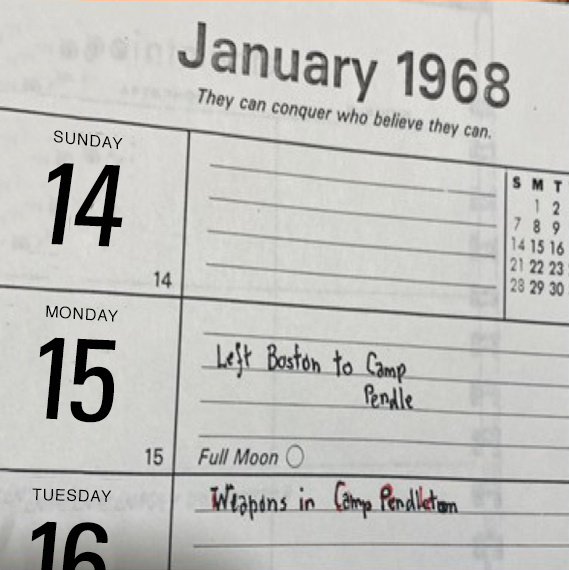 January 1968
They can conquer who believe they can.
SUNDAY
14
14
S M T
1 2
7 8 9
14 15 16
21 22 23
28 29 30
MONDAY
15
15
Left Boston to Camp
Pendle
Full Moon
TUESDAY
16
Weapons in Camp Pendleton